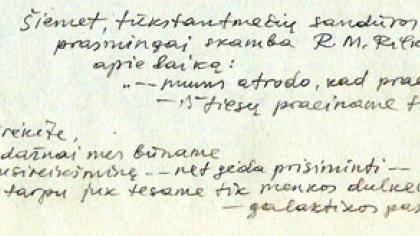 Šiemet, tūkstantmečių sandūros
prasmingai skamba R. M. Rilk
apie laiką:
„-- mums atrodo, kad prae
- iš tiesų praeiname
dažnai mes būname
-- net gėda prisiminti --
tarpu juk tesame tik menkos dulke
- galaktikos pa